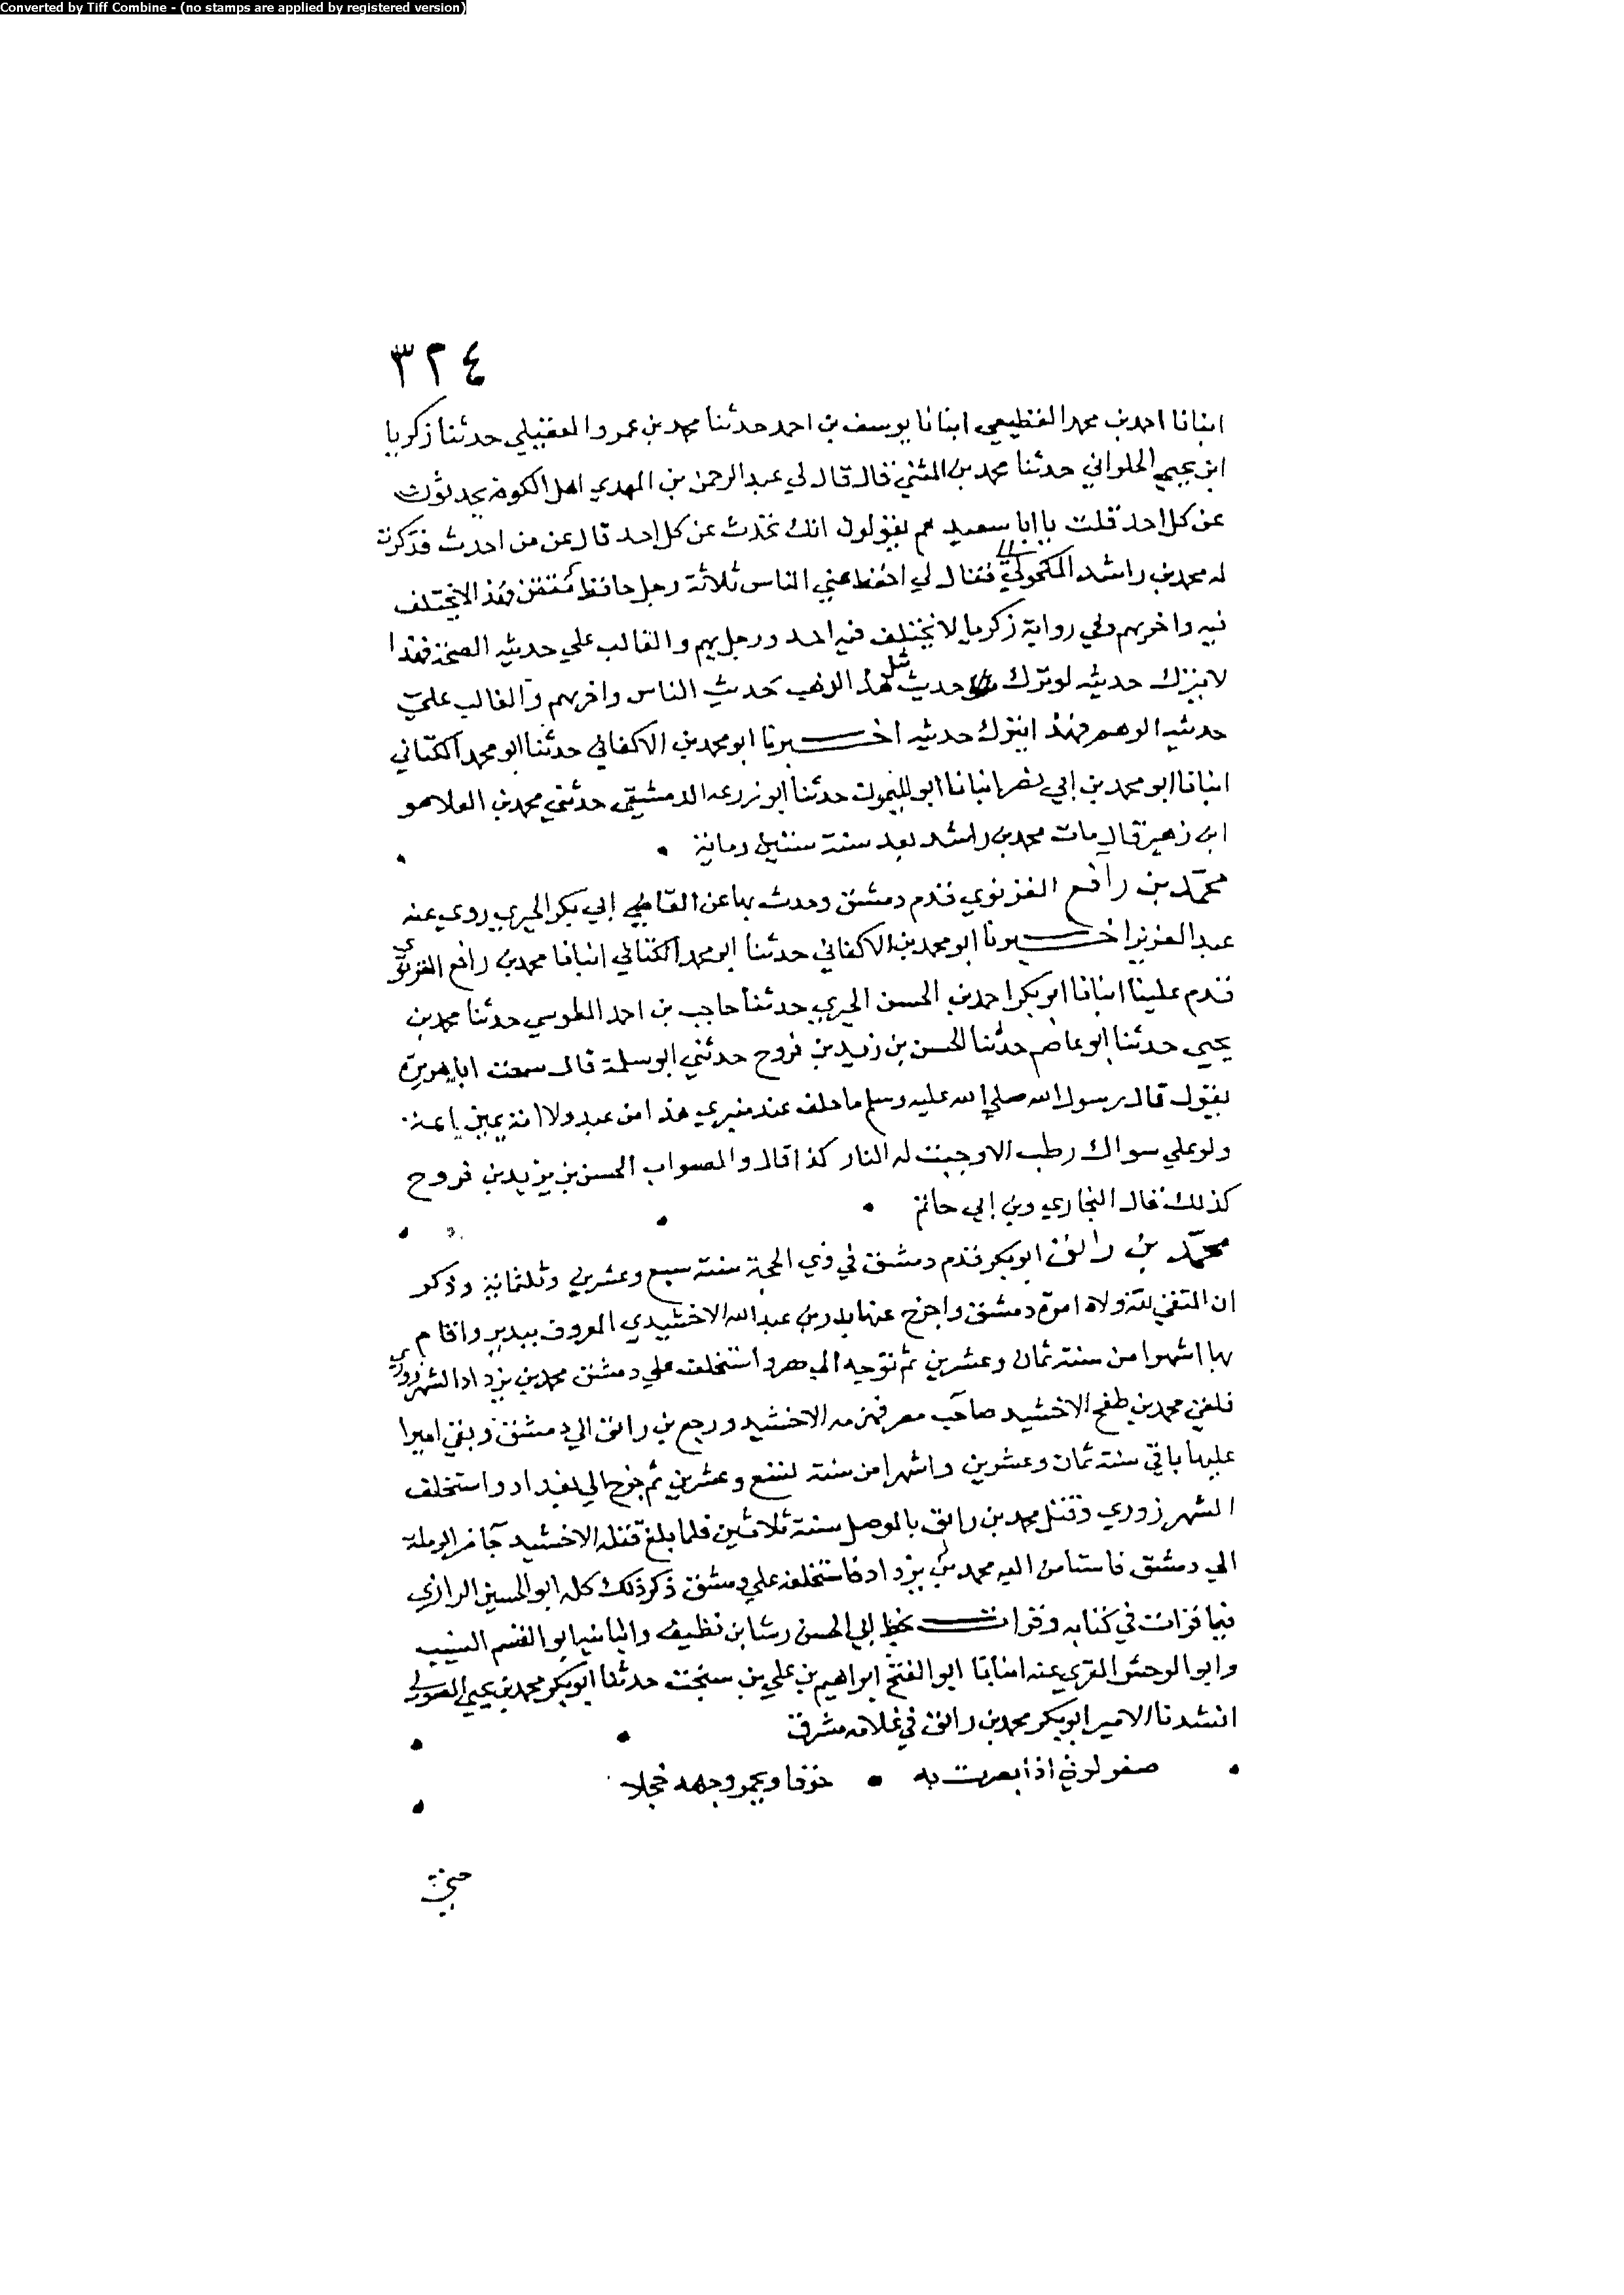 Converted by Tiff Combine - (no stamps are applied by registered version)
٣٢٤
انبانا احمد بن محمد القطيعي انبانا يوسف بن احمد حدثنا محمد بن عمرو العقيلي حدثنا زكريا
ابن يحيى الحلواني حدثنا محمد بن المثني قال قال لي عبد الرحمن بن المهدي اهل الكوفة يحدثون
عن كل احد قلت يا ابا سعيد هم يقولون انك تحدث عن كل احد قال عن من احدث فذكرت
له محمد بن راشد المكحولي فقال لي احفظ عني الناس ثلاثة رجل حافظ متقن فهذا لا يختلف
فيه واخر يهم وفي رواية زكريا لا يختلف فيه احد ورجل يهم والغالب علي حديثه الصحة فهذا
لا يترك حديثه لو ترك حديث مثل هذا لذهب حديث الناس واخر يهم والغالب علي
حديثه الوهم فهذا يترك حديثه اخبرنا ابو محمد بن الاكفاني حدثنا ابو محمد الكتاني
انبانا ابو محمد بن ابي نصر انبانا ابو الميمون حدثنا ابو زرعه الدمشقي حدثني محمد بن العلا هو
ابن زهير قال مات محمد بن راشد بعد سنة ستين ومائة
محمد بن رافع الغزنوي قدم دمشق وحدث بها عن القاضي ابي بكر الحيري روي عنه
عبد العزيز اخبرنا ابو محمد بن الاكفاني حدثنا ابو محمد الكتاني انبانا محمد بن رافع الغزنوي
قدم علينا انبانا ابو بكر احمد بن الحسن الحيري حدثنا حاجب بن احمد الطوسي حدثنا محمد بن
يحيى حدثنا ابو عاصم حدثنا الحسن بن زيد بن فروح حدثني ابو سلمة قال سمعت ابا هريرة
يقول قال رسول الله صلي الله عليه وسلم ما حلف عند منبري هذا من عبد ولا امة يمين
ولو علي سواك رطب الا وجبت له النار كذا قال والصواب الحسن بن يزيد بن فروح
كذلك قال البخاري وبن ابي حاتم
محمد بن رائق ابو بكر قدم دمشق في ذي الحجة سنة سبع وعشرين وثلثمائة وذكر
ان المتقي لله ولاه امرة دمشق واخرج عنها بدر بن عبد الله الاخشيدي المعروف ببدير واقام
بها اشهرا من سنة ثمان وعشرين ثم توجه الي مصر واستخلف علي دمشق محمد بن يزداد الشهرزوري
فلقي محمد بن طغج الاخشيد صاحب مصر فهزمه الاخشيد ورجع بن رائق الي دمشق وبقي اميرا
عليها باقي سنة ثمان وعشرين واشهرا من سنة تسع وعشرين ثم خرج الي بغداد واستخلف
الشهرزوري وقتل محمد بن رائق بالموصل سنة ثلاثين فلما بلغ قتله الاخشيد جا من الرملة
الي دمشق فاستامن اليه محمد بن يزداد فاستخلفه علي دمشق ذكر ذلك كله ابو الحسين الرازي
فيما قرات في كتابه وقرات بخط ابي الحسن رشا بن نظيف وانبانيه ابو القسم النسيب
وابو الوحش المقري عنه انبانا ابو الفتح ابراهيم بن علي بن سبخت حدثنا ابو بكر محمد بن يحيى الصولي
انشدنا الامير ابو بكر محمد بن رائق في غلامه مشرق
صفر لوني اذا بصرت به • خوفا ويحمر وجهه خجلا